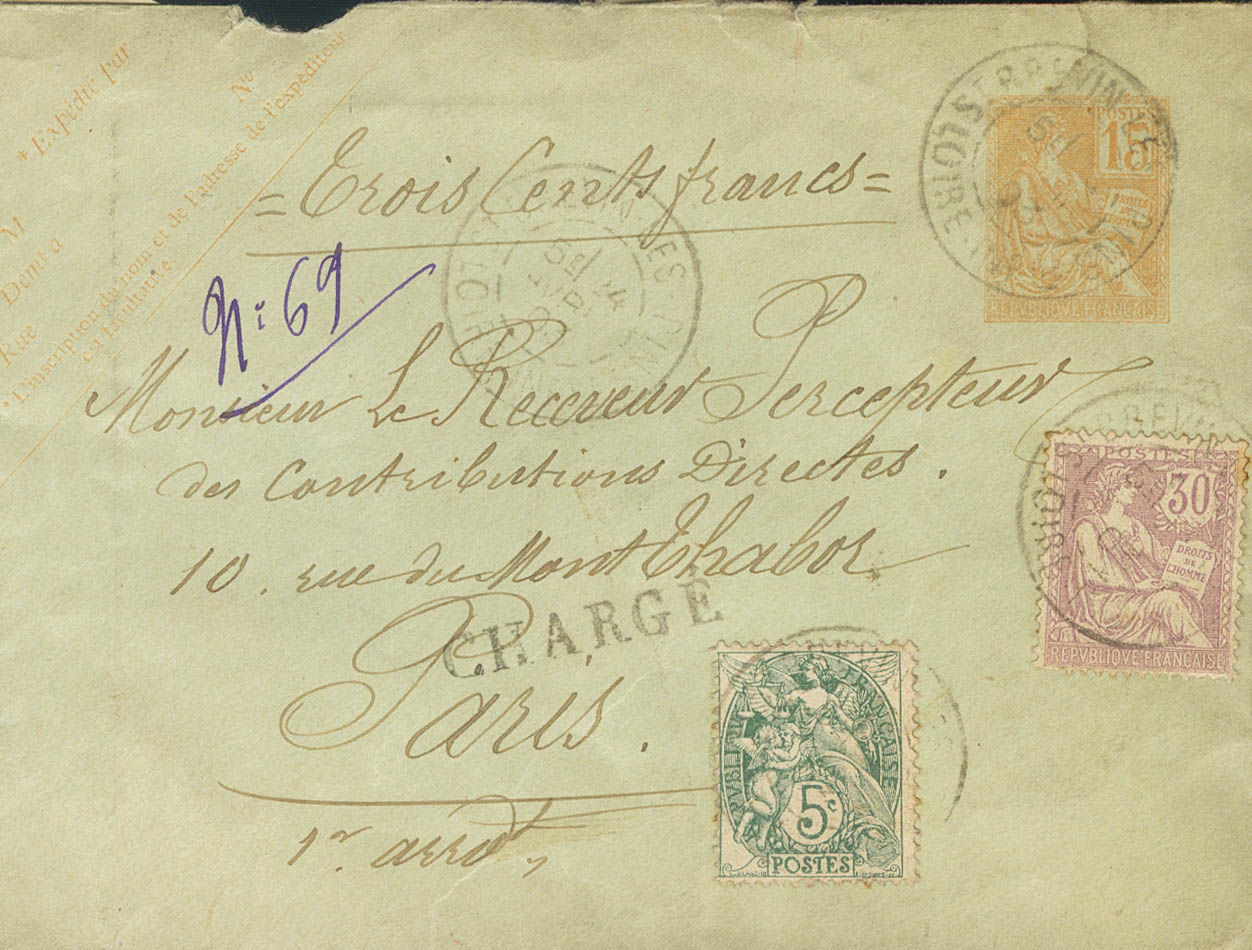 * Expédié par
M
Demt à
Rue
N°
* L'inscription du nom et de l'adresse de l'expéditeur
est facultative.
= Trois Cents francs =
N° 69
Monsieur Le Receveur Percepteur
des Contributions Directes.
10. rue du Mont Thabor
Paris.
1er arrdt,
CHARGÉ
POSTES
15
DROITS
DE
L'HOMME
REPVBLIQVE FRANÇAISE
LORIOL ST BREVIN-LES-PINS
POSTES
30
DROITS
DE
L'HOMME
REPVBLIQVE FRANÇAISE
REPVBLIQVE FRANÇAISE
5c
POSTES